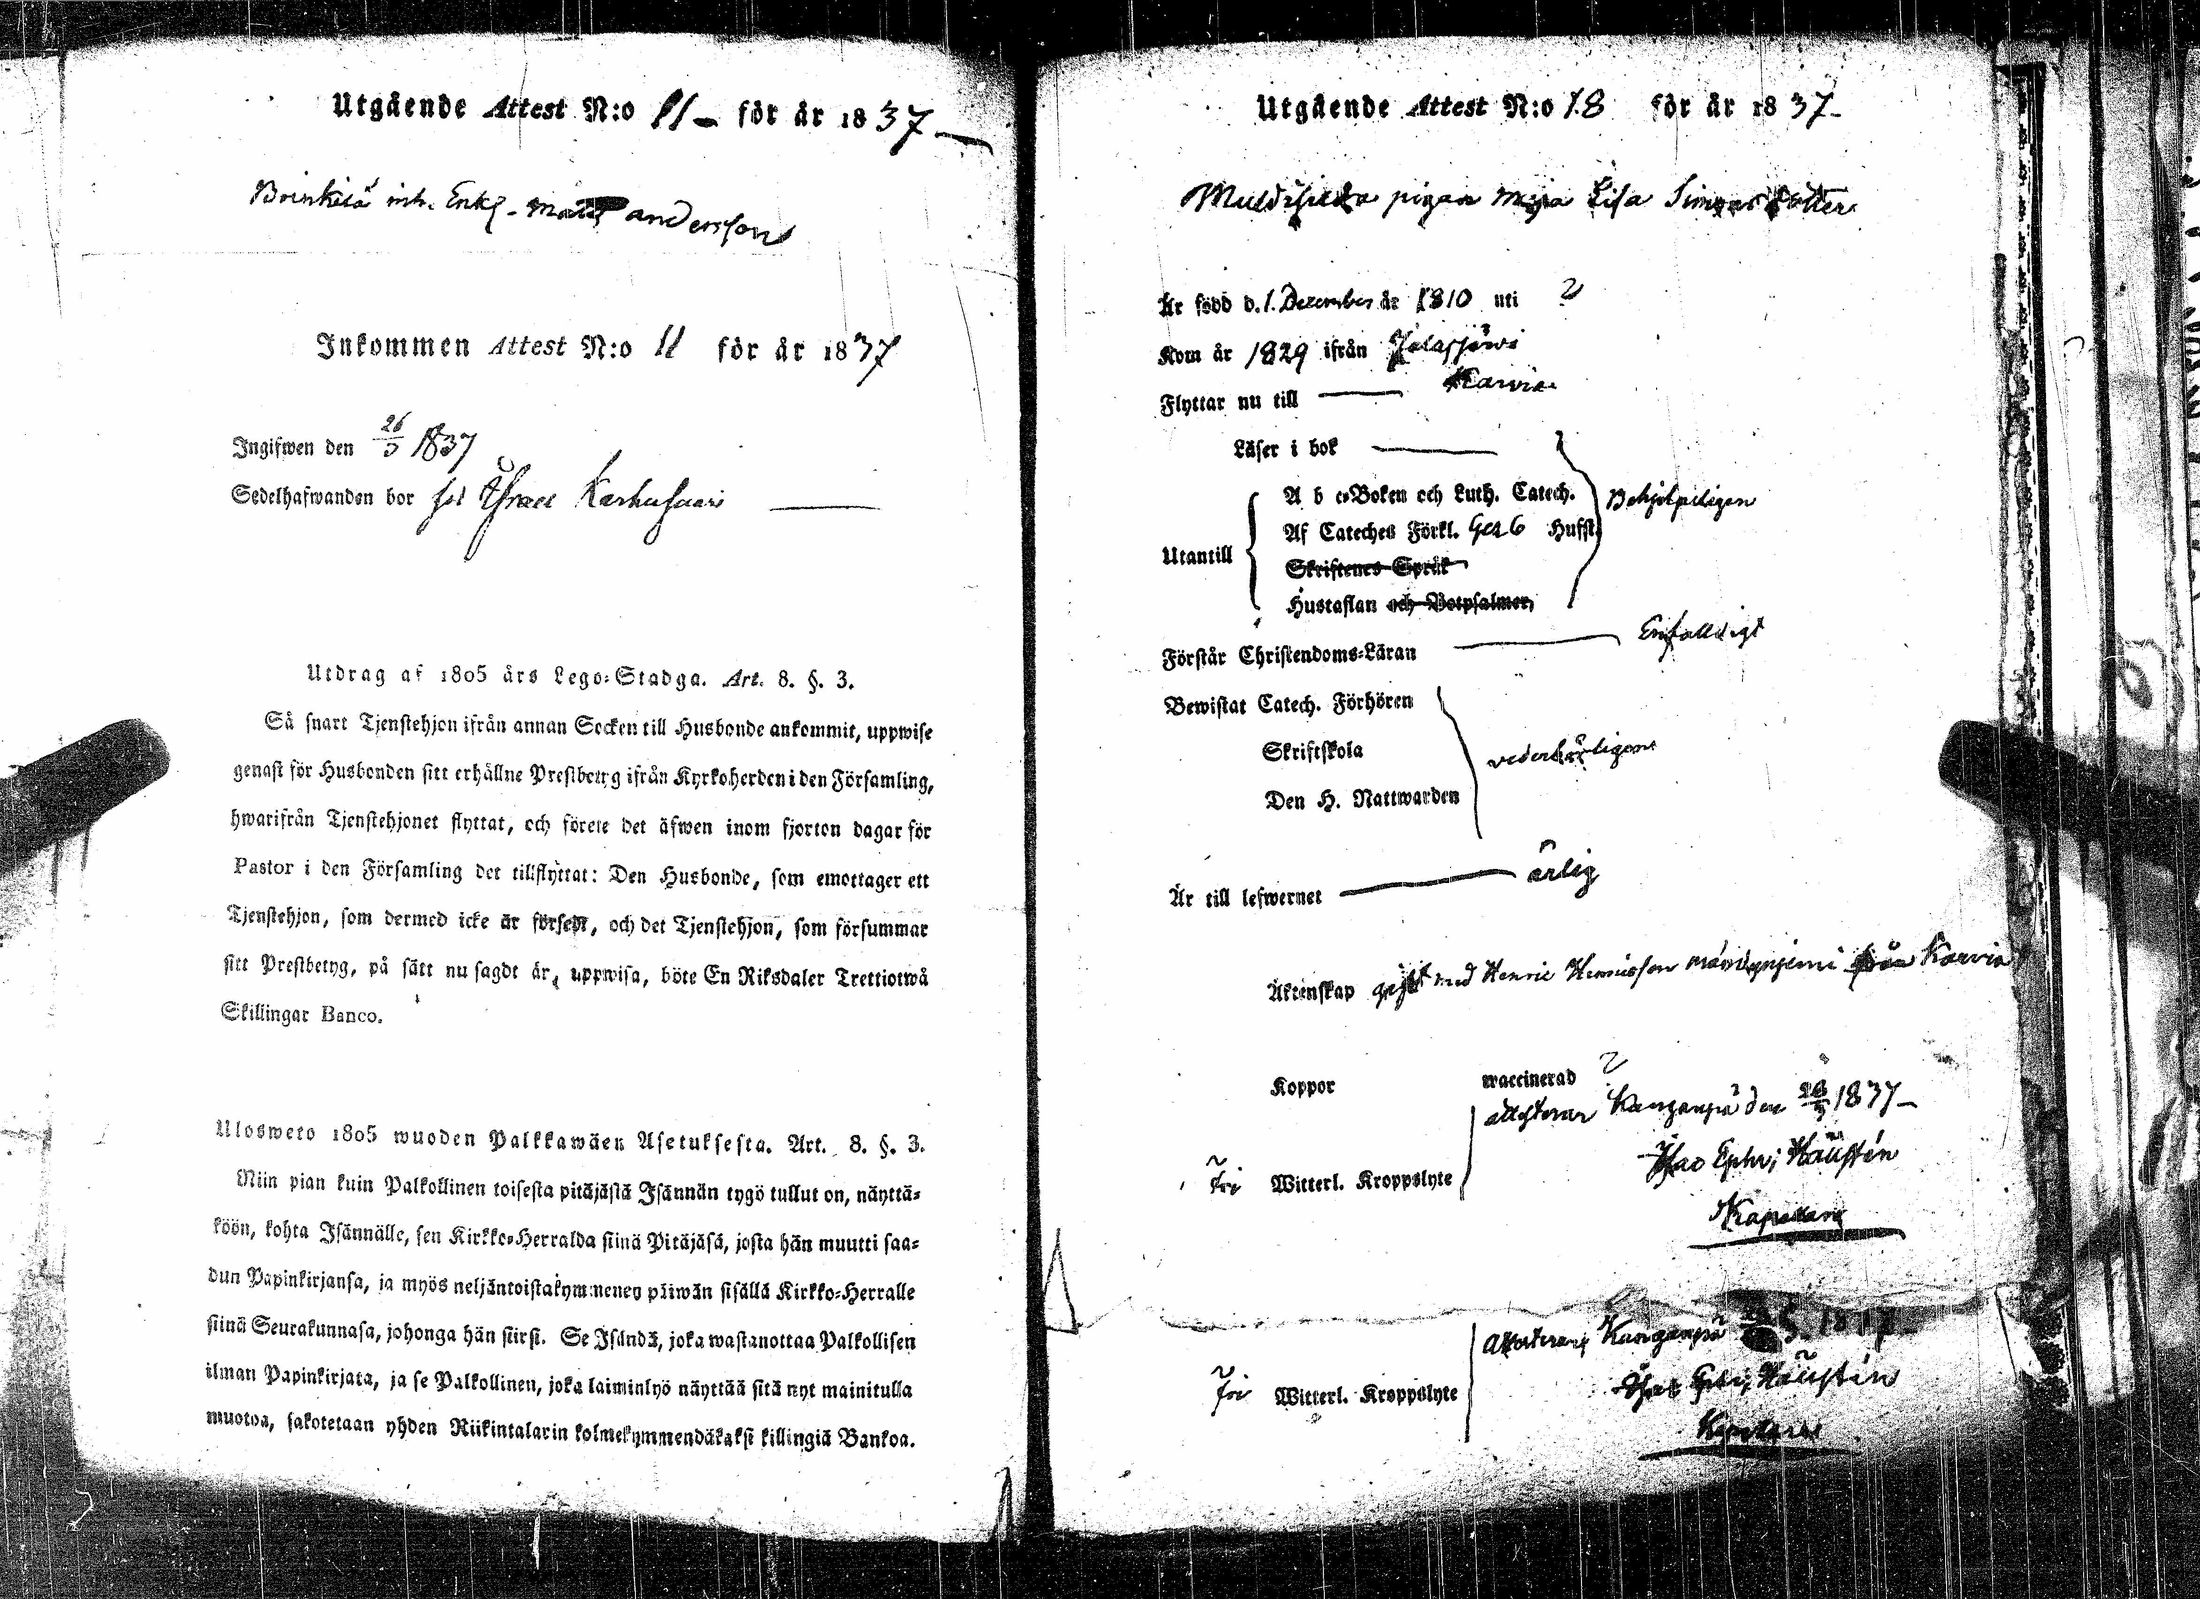 Utgående Attest N:o 11 för år 1837
inh. Enkl. Matts Andersson
Inkommen Attest N:o 11 för år 1837
Ingifwen den 26/3 1837
Sedelhafwanden bor Israel Karhusaari
Utdrag af 1805 års Lego-Stadga. Art. 8. §. 3.
Så snart Tjenstehjon ifrån annan Socken till Husbonde ankommit, uppwise
genast för Husbonden sitt erhållne Prestbetyg ifrån Kyrkoherden i den Församling,
hwarifrån Tjenstehjonet flyttat, och förete det äfwen inom fjorton dagar för
Pastor i den Församling det tillflyttat: Den Husbonde, som emottager ett
Tjenstehjon, som dermed icke är försedt, och det Tjenstehjon, som försummar
sitt Prestbetyg, på sätt nu sagdt är, uppwisa, böte En Riksdaler Trettiotwå
Skillingar Banco.
Ulosweto 1805 wuoden Palkkawäen Asetuksesta. Art. 8. §. 3.
Niin pian kuin Palkollinen toisesta pitäjästä Isännän tygö tullut on, näyttä-
köön, kohta Isännälle, sen Kirkko-Herralda siinä Pitäjäsä, josta hän muutti saa-
dun Papinkirjansa, ja myös neljäntoistakymmenen päiwän sisällä Kirkko-Herralle
siinä Seurakunnasa, johonga hän siirsi. Se Isändä, joka wastanottaa Palkollisen
ilman Papinkirjata, ja se Palkollinen, joka laiminlyö näyttää sitä nyt mainitulla
muotoa, sakotetaan yhden Riikintalarin kolmekymmendäkaksi killingiä Bankoa.
Utgående Attest N:o 18 för år 1837
pigan Maja Lisa Simonsdotter
Är född d. 1. December år 1810 uti ?
Kom år 1829 ifrån Jalasjärwi
Flyttar nu till Karvia
Läser i bok
A b c-Boken och Luth. Catech. Behjelpeligen
Af Cateches Förkl. Hufst.
Utantill
Skriftenes Språk
Hustaflan och Botpsalmer,
Förstår Christendoms-Läran Enfalldigt
Bewistat Catech. Förhören
Skriftskola vederbörligen
Den H. Nattwarden
Är till lefwernet ärlig
Äktenskap gift med Henric Henricsson från Karvia
Koppor waccinerad ?
attesterar Kanganpä den 1837
Fri Witterl. Kroppslyte
Isac Ephr; Haustén
Kapellan
attesterar Kanganpä
Fri Witterl. Kroppslyte
Isac Ephr; Haustén
Kapellan